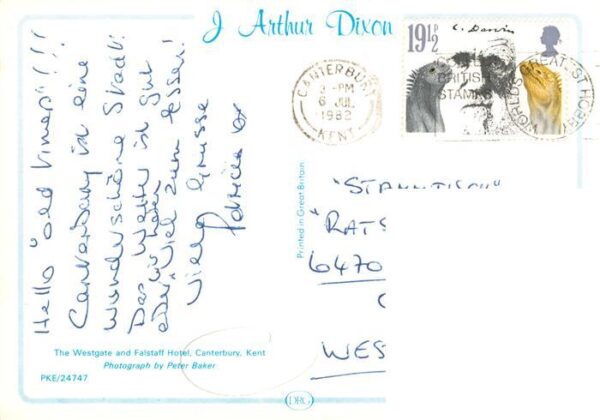 J Arthur Dixon
19½P
C. Darwin
CANTERBURY
3 - PM
6 JUL
1982
KENT
BRITISH
STAMPS
WORLD'S GREATEST HOBBY
Hello "old timers"!!!
Canterbury ist eine
wunderschöne Stadt!
Das Wetter ist gut
wir haben
viel zum Essen!
Viele Grüsse
Patricia
Printed in Great Britain
"STAMMTISCH"
"RATS
6470
WES
The Westgate and Falstaff Hotel, Canterbury, Kent
Photograph by Peter Baker
PKE/24747
DRG